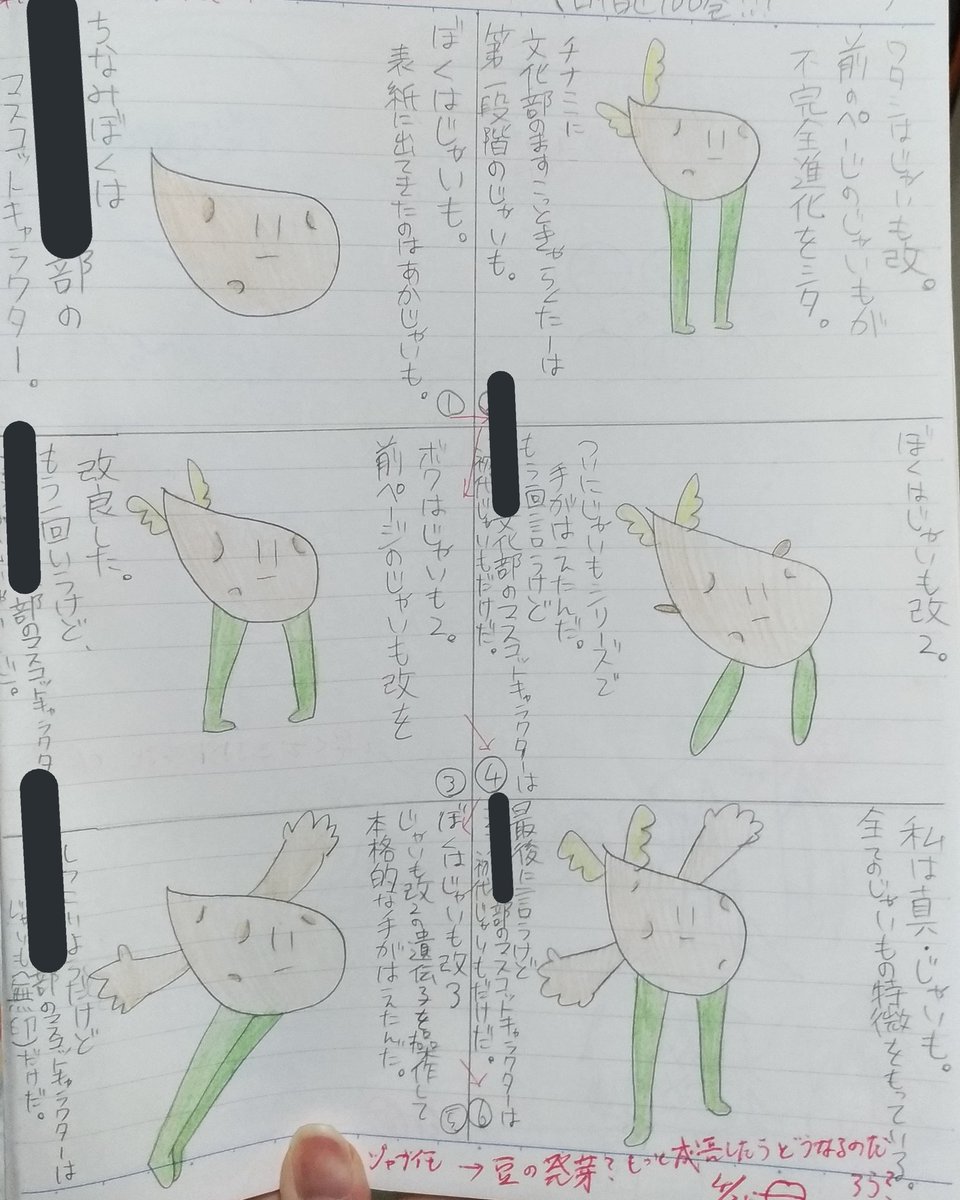 ぼくはじゃいも。
表紙に出てきたのはあかじゃいも。
ちなみぼくは
部の
マスコットキャラクター。
①
ワタシはじゃいも改。
前のページのじゃいもが
不完全進化をシタ。
チナミに
文化部のますこっときゃらくたーは
第一段階のじゃいも。
ボクはじゃいも2。
前ページのじゃいも改を
改良した。
もう一回いうけど、
部のマスコットキャラクタ
③
ぼくはじゃいも改2。
ついにじゃいもシリーズで
手がはえたんだ。
もう一回言うけど
文化部のマスコットキャラクターは
初代じゃいもだけだ。
④
ぼくはじゃいも改3
じゃいも改2の遺伝子を操作して
本格的な手がはえたんだ。
しつこいようだけど
部のマスコットキャラクターは
じゃいも(無印)だけだ。
⑤
私は真・じゃいも。
全てのじゃいもの特徴をもっている。
最後に言うけど
部のマスコットキャラクターは
初代じゃいもだけだ。
⑥
ジャガイモ → 豆の発芽?もっと成長したらどうなるのだ
ろう?